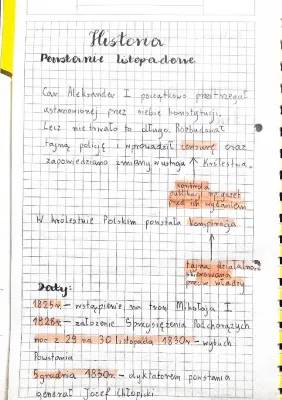 Historia
Powstanie listopadowe
Car Aleksander I początkowo przestrzegał
ustanowionej przez siebie konstytucji.
Lecz nie trwało to długo. Rozbudował
tajną policję i wprowadził cenzurę oraz
zapowiedziano zmiany ustroju Królestwa.
kontrola
publikacji mp. książek
przed ich wydaniem
W Królestwie Polskim powstała konspiracja
tajna działalność
skierowana
przeciw władzy
Daty:
1825r. - wstąpienie na tron Mikołaja I
1828r. - założenie Sprzysiężenia Podchorążych
noc z 29 na 30 listopada 1830r - wybuch
Powstania
5 grudnia 1830r. - dyktatorem powstania
generał Józef Chłopicki